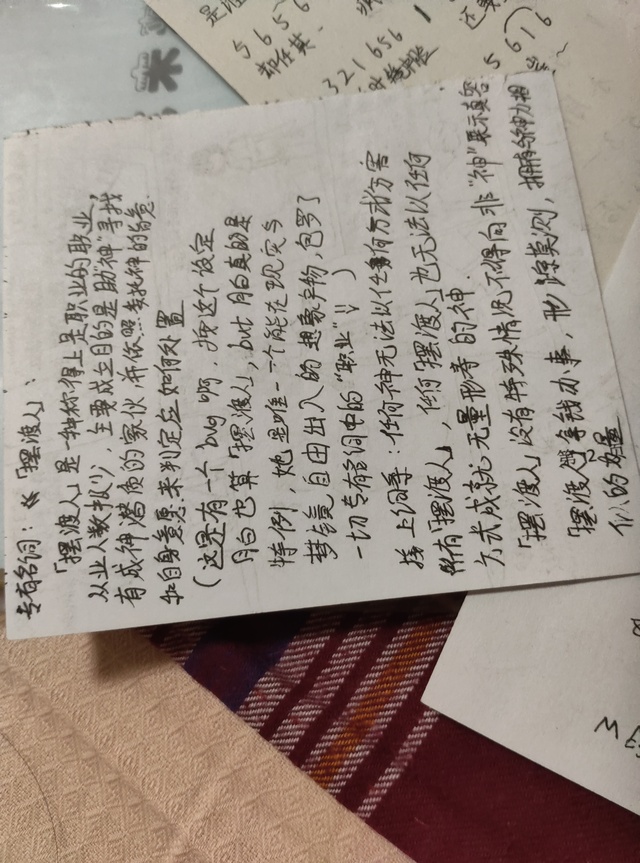 专有名词:《「摆渡人」、
「摆渡人」是一种称得上是职业的职业,
从业人数极少,主要成立目的是助“神”寻找
有成神潜质的家伙,并依照委托神的旨意
和自身意愿来判定应如何处置
(这里有一个bug啊,按这个设定
月白也算「摆渡人」,but月白真的是
特例,她是唯一一个能在现实与
梦境自由出入的想象产物,包罗了
一切专有名词中的“职业”!!)
接上词条:任何神无法以任何方式伤害
所有「摆渡人」,任何「摆渡人」也无法以任何
方式成就无量形寿的神.
「摆渡人」没有特殊情况不得向非“神”展示真容
「摆渡人」拿钱办事,形踪莫测,拥有
们的
是
5 6 5 6
321656
5 6 1 6
这
W